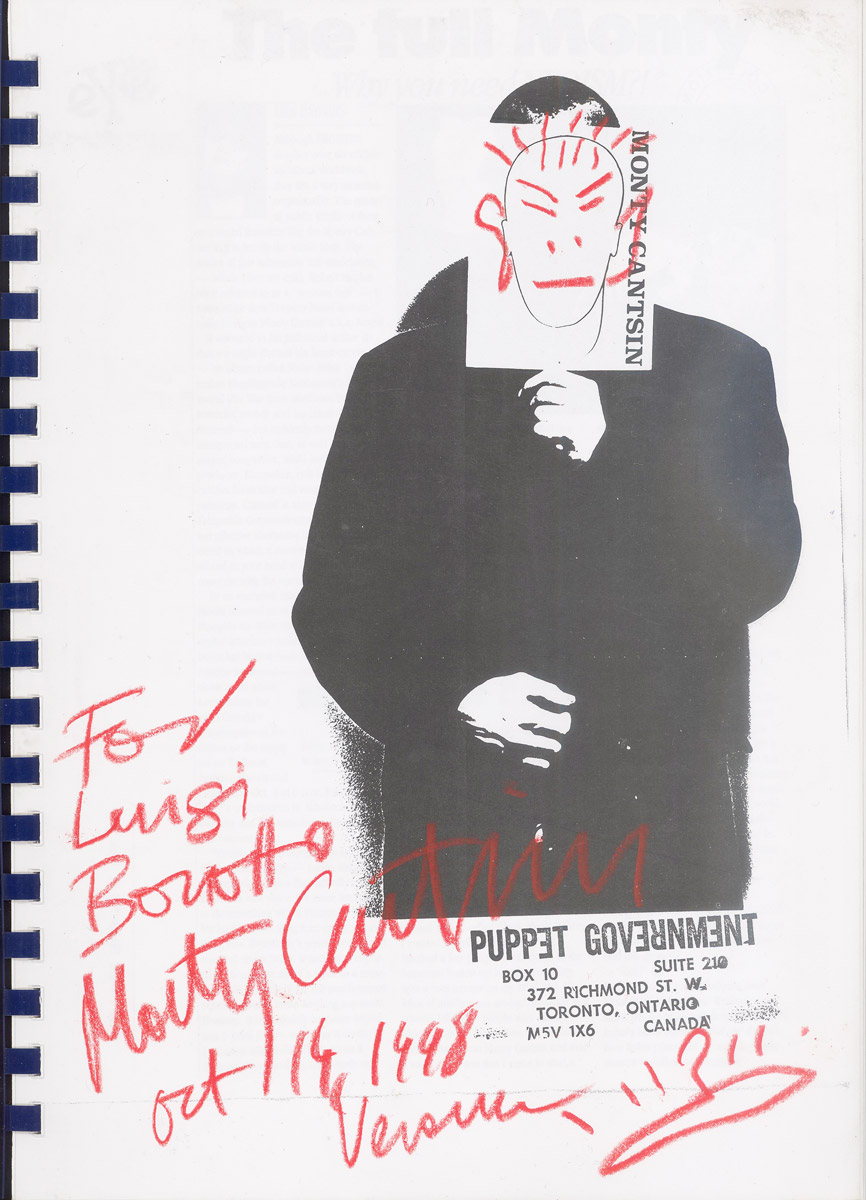 The full Monty
MONTY CANTSIN
For
Luigi
Bonotto
Monty Cantsin
PUPPET GOVERNMENT
BOX 10 SUITE 210
372 RICHMOND ST. W.
TORONTO, ONTARIO
M5V 1X6 CANADA
oct 14, 1998
Verona